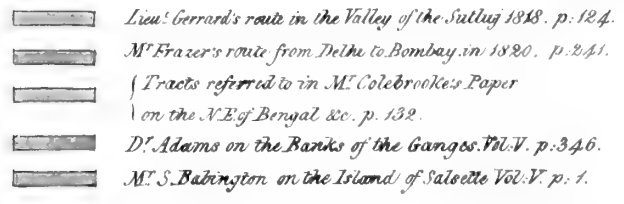 Lieut. Gerrard's route in the Valley of the Sutlug 1818. p: 124.
Mr Frazer's route from Delhi to Bombay in 1820. p: 241.
Tracts referred to in Mr Colebrooke's Paper
on the N.E. of Bengal &c. p. 132.
Dr Adams on the Banks of the Ganges. Vol: V. p: 346.
Mr S. Babington on the Island of Salsette Vol: V. p: 1.